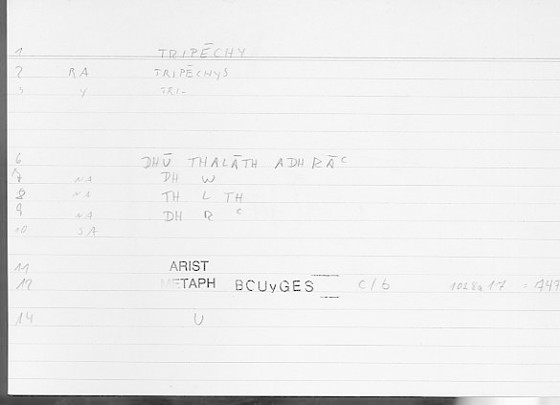 1 TRIPĒCHY
2 RA TRIPĒCHYS
3 Y TRI-
6 DHŪ THALĀTH ADHRĀᶜ
7 NA DH W
8 NA TH L TH
9 NA DH R ᶜ
10 SA
11 ARIST
12 METAPH BOUyGES c/b 1028a17 = 747
14 U